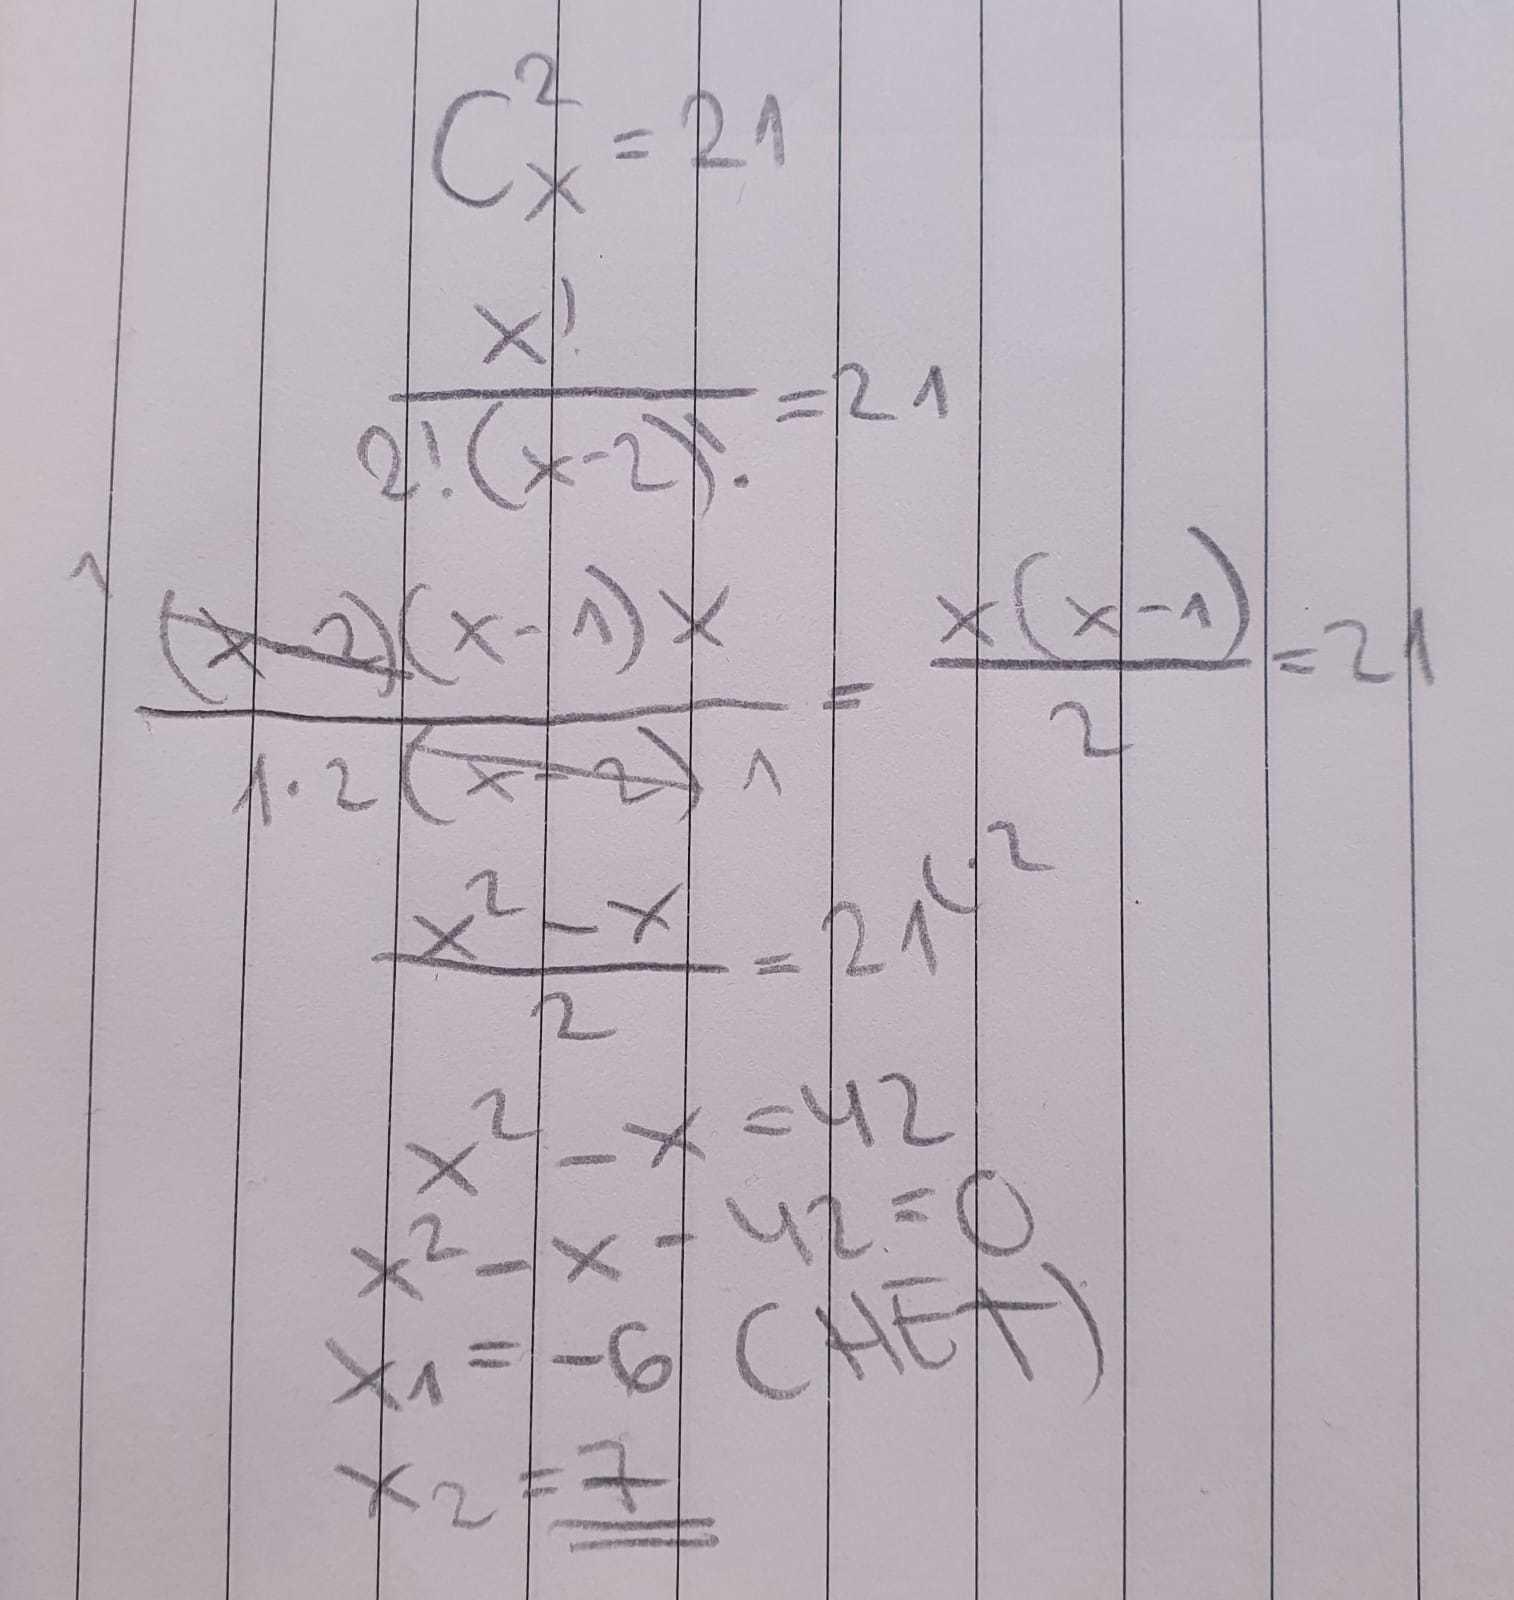 C²ₓ = 21
x! / 2!(x-2)! = 21
1 (x-2)(x-1)x / 1·2(x-2) 1 = x(x-1) / 2 = 21
x² - x / 2 = 21 (·2
x² - x = 42
x² - x - 42 = 0
x₁ = -6 (НЕТ)
x₂ = 7